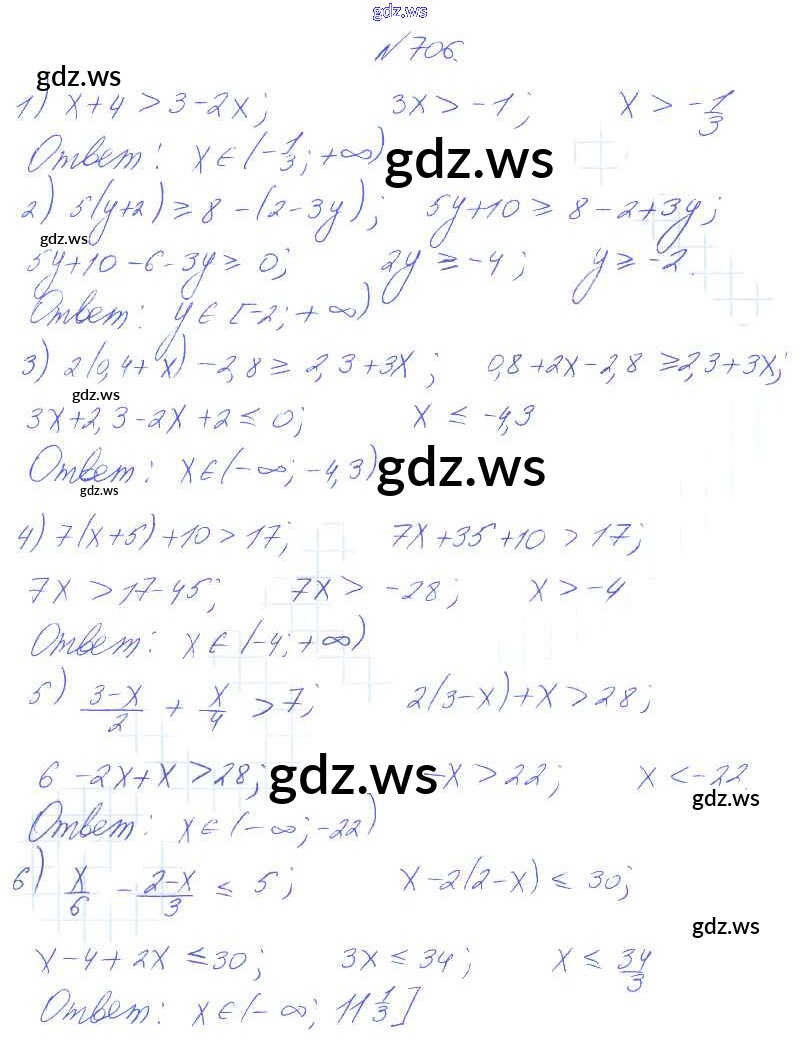 gdz.ws
N 706.
gdz.ws
1) x+4 > 3-2x; 3x > -1; x > -1/3
Ответ: x∈(-1/3; +∞)
gdz.ws
2) 5(y+2) ≥ 8-(2-3y); 5y+10 ≥ 8-2+3y;
gdz.ws
5y+10-6-3y ≥ 0; 2y ≥ -4; y ≥ -2.
Ответ: y∈[-2; +∞)
3) 2(0,4+x)-2,8 ≥ 2,3+3x; 0,8+2x-2,8 ≥ 2,3+3x;
gdz.ws
3x+2,3-2x+2 ≤ 0; x ≤ -4,3
Ответ: x∈(-∞; -4,3)
gdz.ws
gdz.ws
4) 7(x+5)+10 > 17; 7x+35+10 > 17;
7x > 17-45; 7x > -28; x > -4
Ответ: x∈(-4; +∞)
5) (3-x)/2 + x/4 > 7; 2(3-x)+x > 28;
6-2x+x > 28; -x > 22; x < -22.
gdz.ws
gdz.ws
Ответ: x∈(-∞; -22)
6) x/6 - (2-x)/3 ≤ 5; x-2(2-x) ≤ 30;
gdz.ws
x-4+2x ≤ 30; 3x ≤ 34; x ≤ 34/3
Ответ: x∈(-∞; 11 1/3]